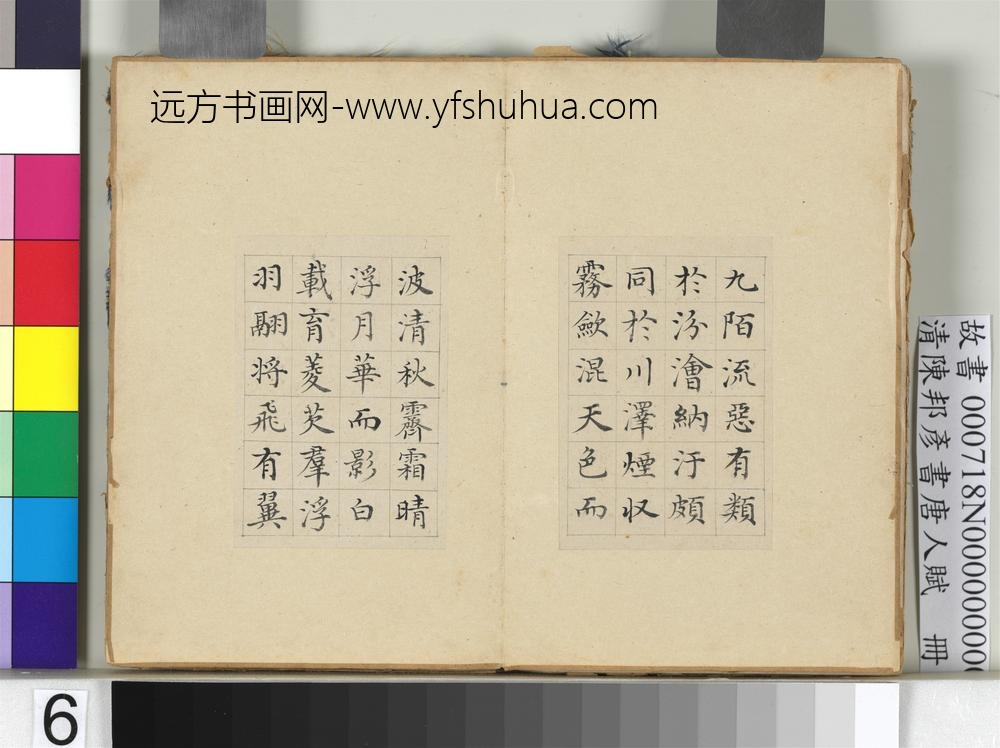 远方书画网-www.yfshuhua.com
九陌流惡有類
於汾澮納汙頗
同於川澤煙収
霧歛混天色而
波清秋霽霜晴
浮月華而影白
載育菱芡羣浮
羽翮将飛有翼
故書000718N00000000
清陳邦彥書唐人賦 冊
6